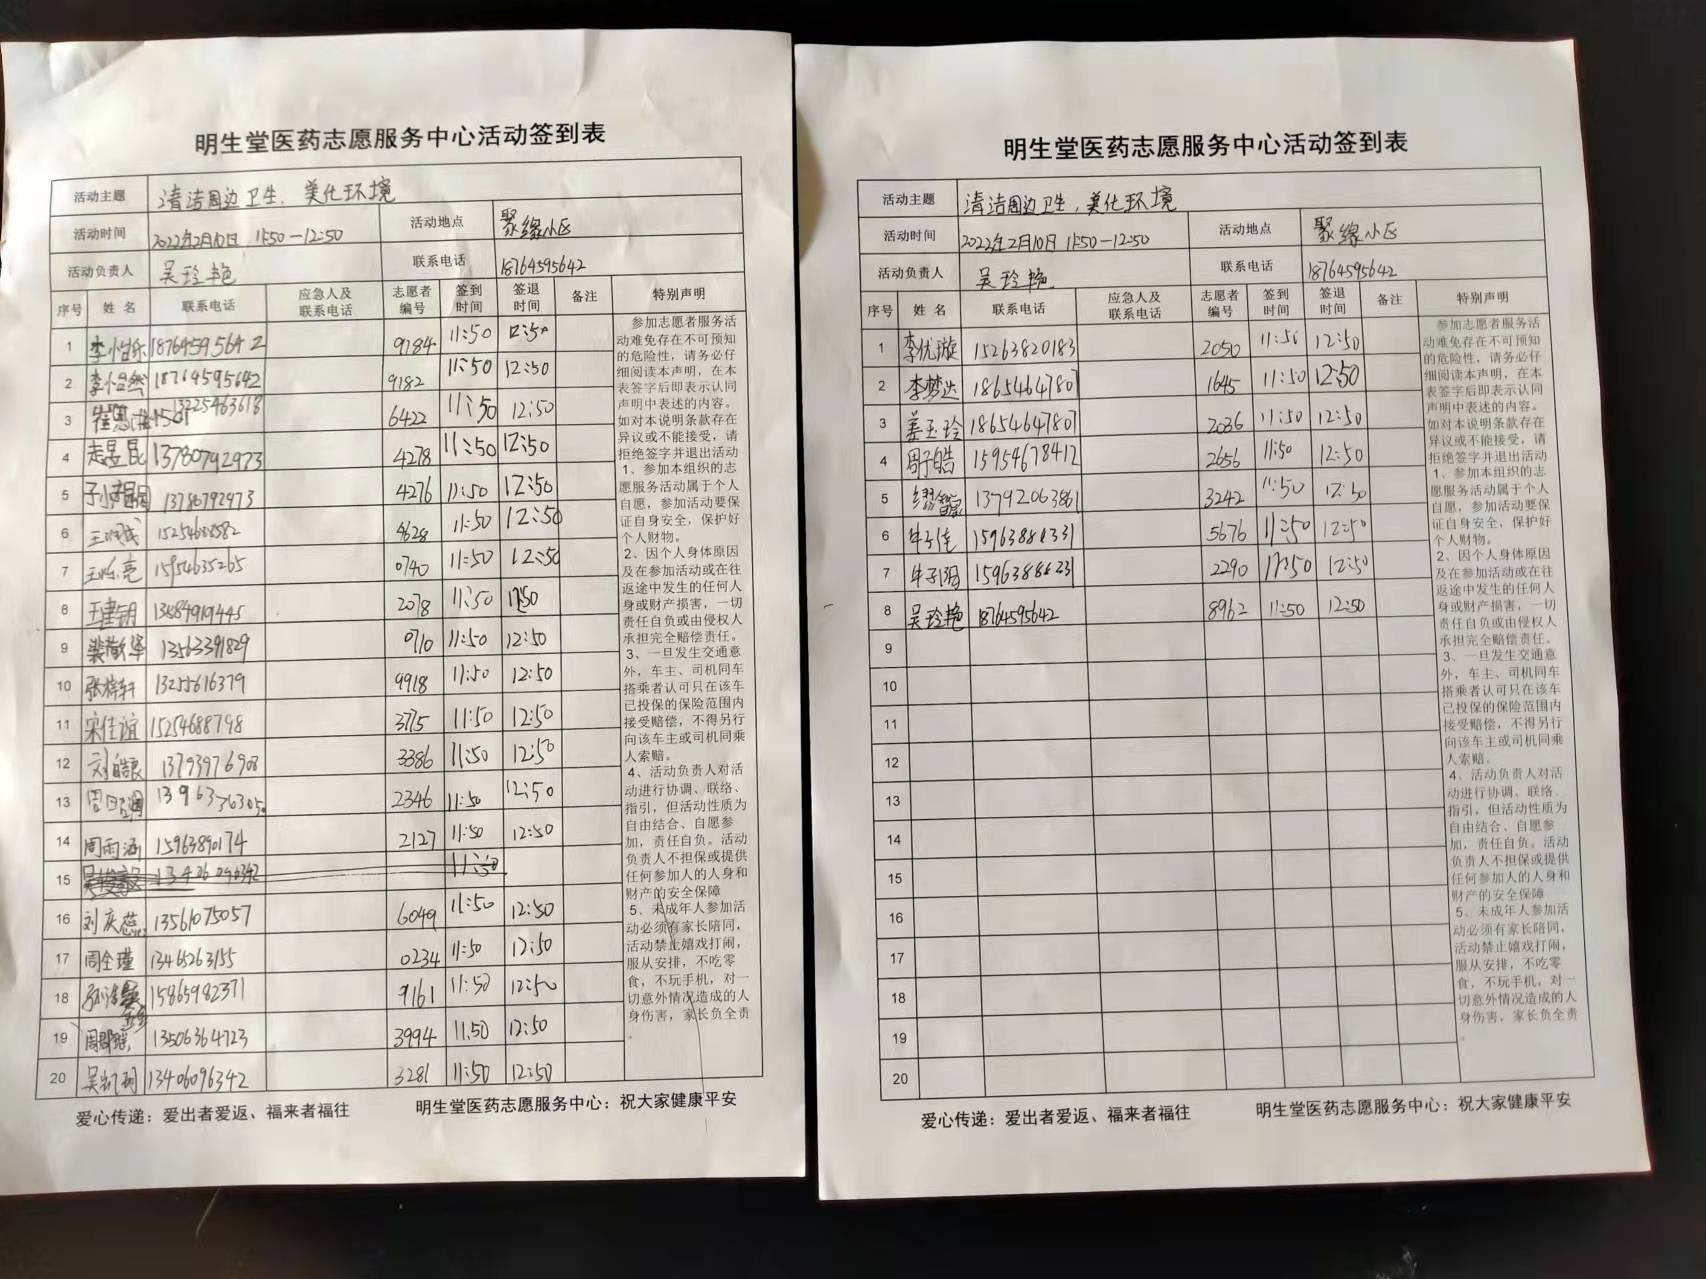 明生堂医药志愿服务中心活动签到表
活动主题 清洁周边卫生、美化环境
活动时间 2022年2月10日 11:50—12:50 活动地点 聚缘小区
活动负责人 吴玲艳 联系电话 18764595642
序号 姓名 联系电话 应急人及联系电话 志愿者编号 签到时间 签退时间 备注 特别声明
1 李怡乐 18764595642 9184 11:50 12:50
2 李怡然 18764595642 9182 11:50 12:50
3 13225463618 6422 11:50 12:50
4 13780792973 4278 11:50 12:50
5 13780792973 4276 11:50 12:50
6 4628 11:50 12:50
7 15954635265 0740 11:50 12:50
8 2078 11:50
9 13563391829 0710 11:50 12:50
10 张梓轩 13255616379 9918 11:50 12:50
11 宋佳谊 15254688798 3775 11:50 12:50
12 刘皓良 13793976908 3386 11:50 12:50
13 2346 11:50 12:50
14 周雨涵 15963890174 2127 11:50 12:50
15 11:50
16 刘庆蕊 13561075057 6049 11:50 12:50
17 周全瑾 13465263155 0234 11:50 12:50
18 15865982371 9161 11:50 12:50
19 13506364723 3994 11:50 12:50
20 吴凯玥 13406096342 3281 11:50 12:50
参加志愿者服务活
动难免存在不可预知
的危险性，请务必仔
细阅读本声明，在本
表签字后即表示认同
声明中表述的内容。
如对本说明条款存在
异议或不能接受，请
拒绝签字并退出活动
1、参加本组织的志
愿服务活动属于个人
自愿，参加活动要保
证自身安全，保护好
个人财物。
2、因个人身体原因
及在参加活动或在往
返途中发生的任何人
身或财产损害，一切
责任自负或由侵权人
承担完全赔偿责任。
3、一旦发生交通意
外，车主、司机同车
搭乘者认可只在该车
已投保的保险范围内
接受赔偿，不得另行
向该车主或司机同乘
人索赔。
4、活动负责人对活
动进行协调、联络、
指引，但活动性质为
自由结合、自愿参
加，责任自负。活动
负责人不担保或提供
任何参加人的人身和
财产的安全保障
5、未成年人参加活
动必须有家长陪同，
活动禁止嬉戏打闹，
服从安排，不吃零
食，不玩手机，对一
切意外情况造成的人
身伤害，家长负全责
。
爱心传递：爱出者爱返、福来者福往 明生堂医药志愿服务中心：祝大家健康平安
明生堂医药志愿服务中心活动签到表
活动主题 清洁周边卫生，美化环境
活动时间 2022年2月10日 11:50—12:50 活动地点 聚缘小区
活动负责人 吴玲艳 联系电话 18764595642
序号 姓名 联系电话 应急人及联系电话 志愿者编号 签到时间 签退时间 备注 特别声明
1 李优璇 15263820183 2050 11:50 12:50
2 李梦达 18654647807 1645 11:50 12:50
3 姜玉玲 18654647807 2036 11:50 12:50
4 周子皓 15954678412 2656 11:50 12:50
5 13792063861 3242 11:50 12:50
6 牛子佳 5676 11:50 12:50
7 2290 11:50 12:50
8 吴玲艳 18764595642 8962 11:50 12:50
9
10
11
12
13
14
15
16
17
18
19
20
参加志愿者服务活
动难免存在不可预知
的危险性，请务必仔
细阅读本声明，在本
表签字后即表示认同
声明中表述的内容。
如对本说明条款存在
异议或不能接受，请
拒绝签字并退出活动
1、参加本组织的志
愿服务活动属于个人
自愿，参加活动要保
证自身安全，保护好
个人财物。
2、因个人身体原因
及在参加活动或在往
返途中发生的任何人
身或财产损害，一切
责任自负或由侵权人
承担完全赔偿责任。
3、一旦发生交通意
外，车主、司机同车
搭乘者认可只在该车
已投保的保险范围内
接受赔偿，不得另行
向该车主或司机同乘
人索赔。
4、活动负责人对活
动进行协调、联络、
指引，但活动性质为
自由结合、自愿参
加，责任自负。活动
负责人不担保或提供
任何参加人的人身和
财产的安全保障
5、未成年人参加活
动必须有家长陪同，
活动禁止嬉戏打闹，
服从安排，不吃零
食，不玩手机，对一
切意外情况造成的人
身伤害，家长负全责
。
爱心传递：爱出者爱返、福来者福往 明生堂医药志愿服务中心：祝大家健康平安